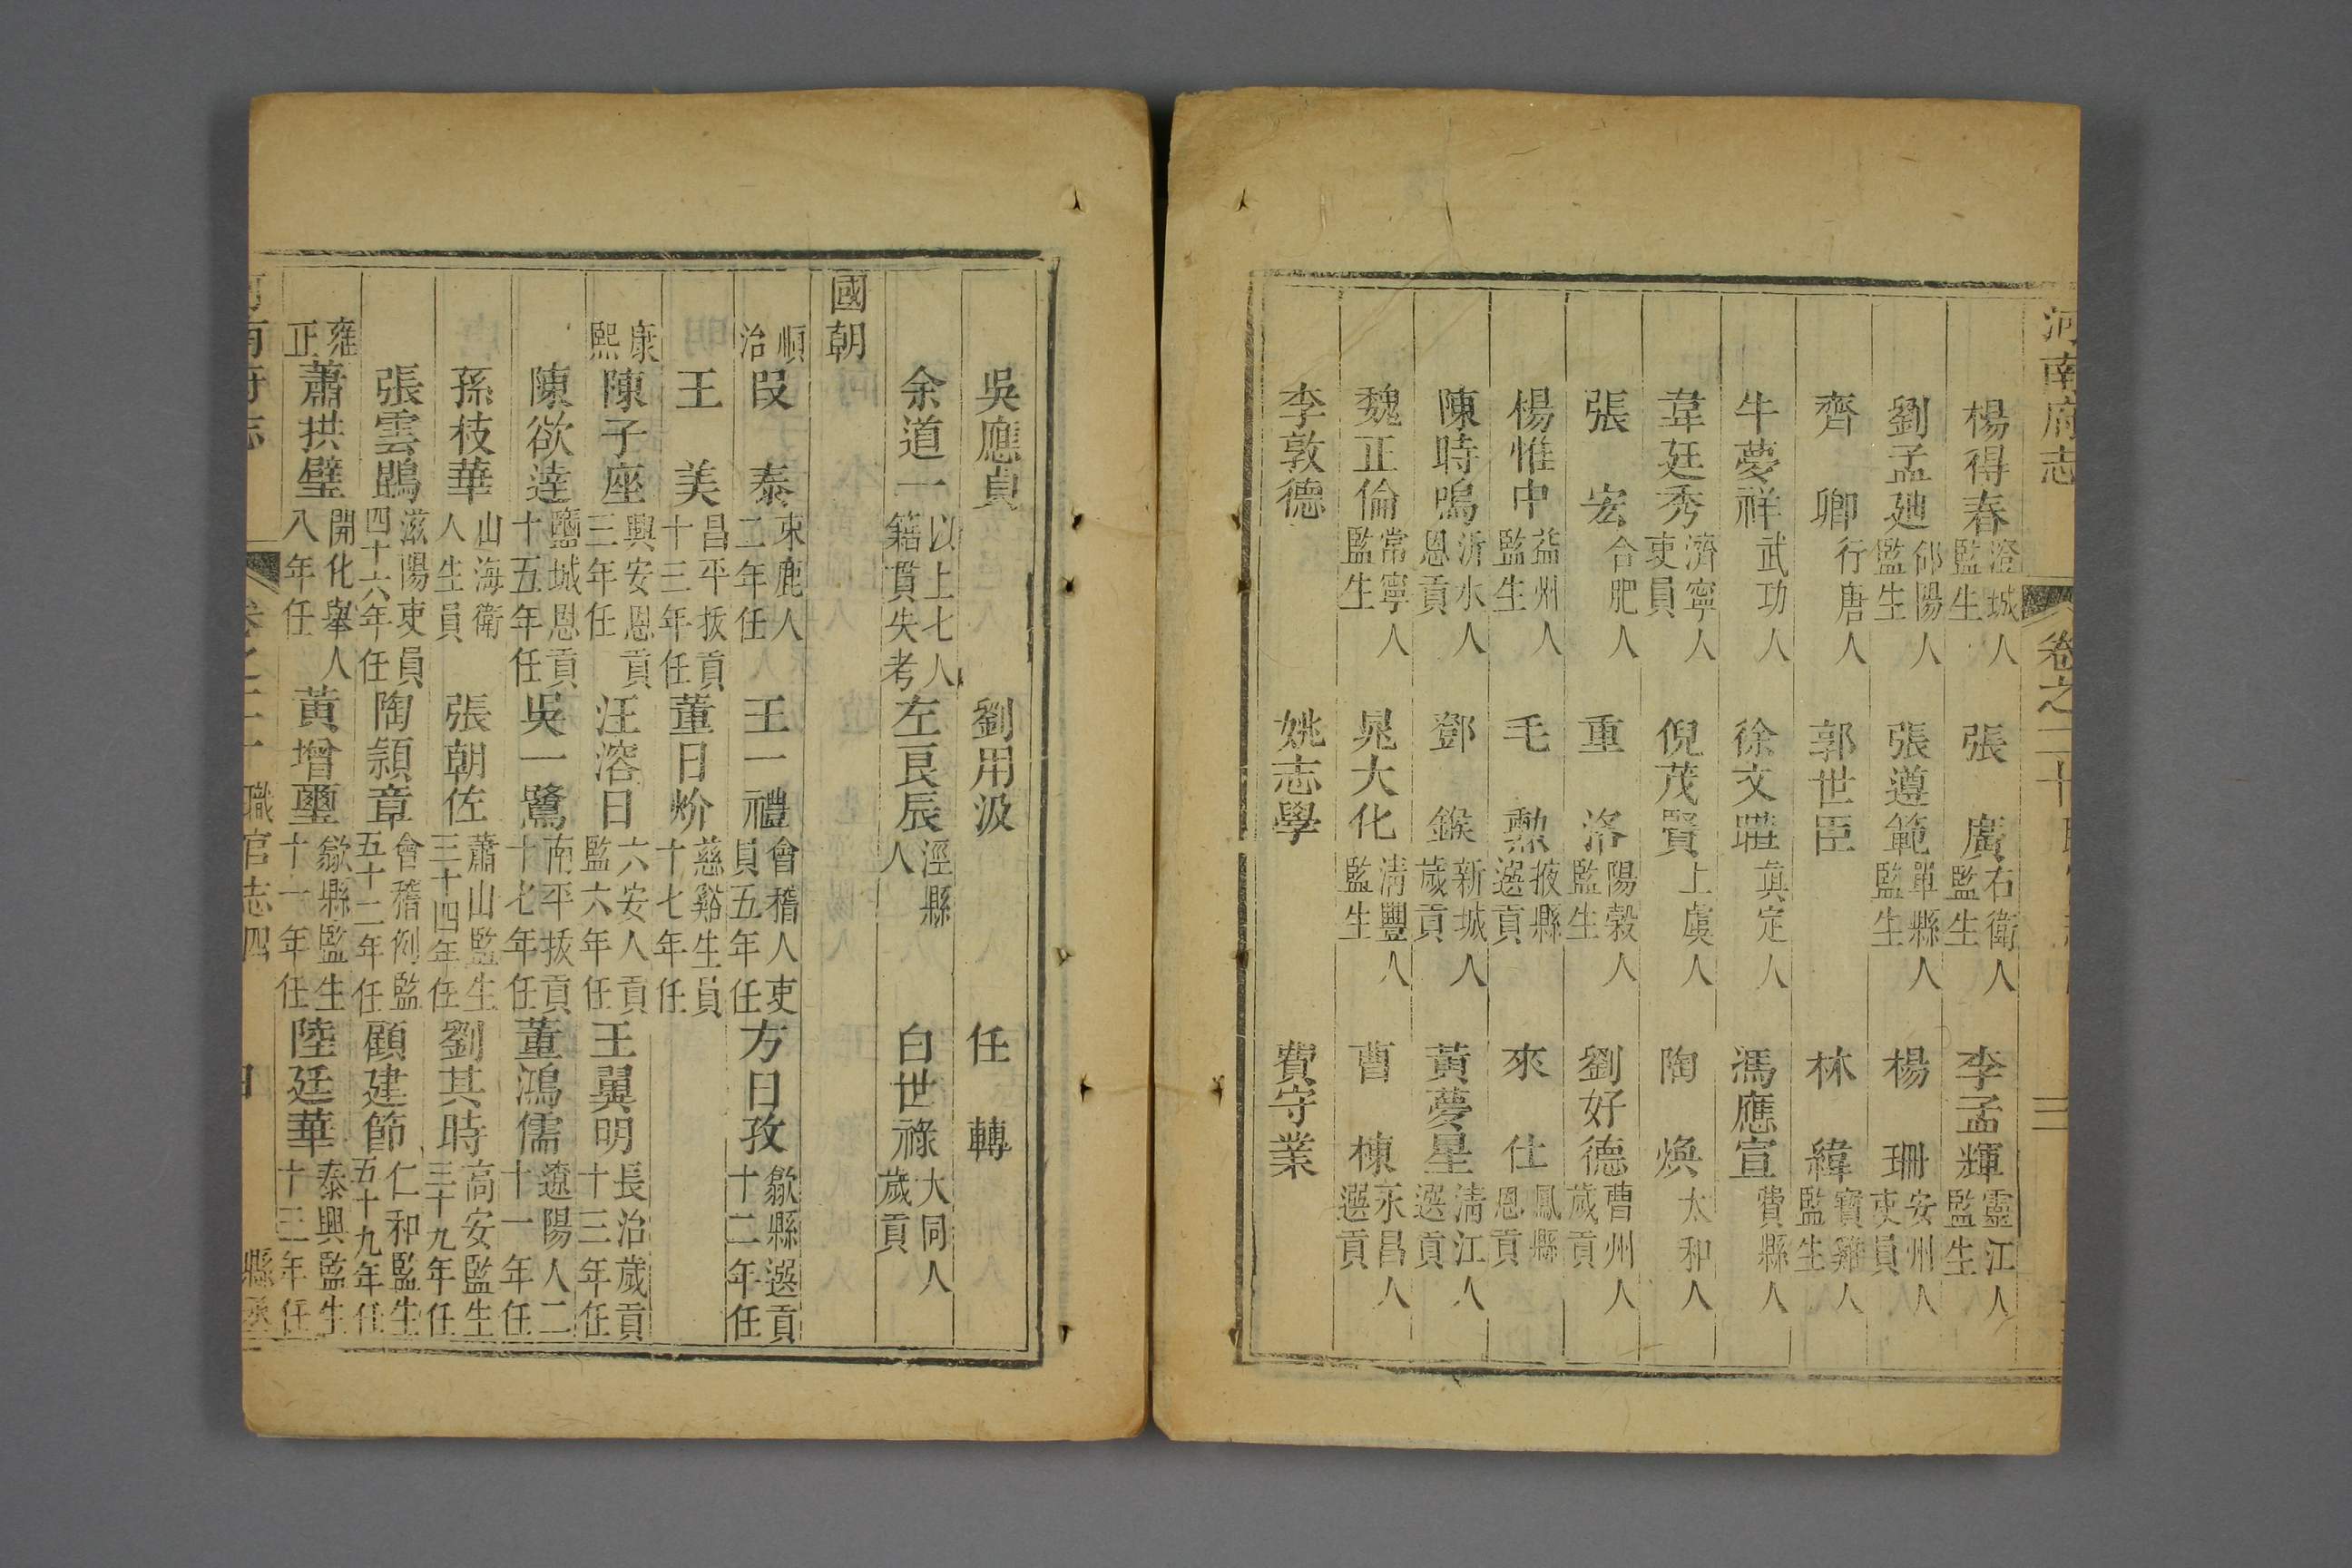 河南府志 卷之二十 三
楊得春 澄城人監生 張廣 右衛人監生 李孟輝 靈江人監生
劉孟𨒪 郃陽人監生 張遵範 單縣人監生 楊珊 安州人吏員
齊卿 行唐人 郭世臣 林緯 寶雞人監生
牛夢祥 武功人 徐文 眞定人 馮應宣 費縣人
韋廷秀 濟寧人吏員 倪茂賢 上虞人 陶煥 太和人
張宏 合肥人 重洛 陽穀人監生 劉好德 曹州人歲貢
楊惟中 益州人監生 毛勲 掖縣選貢 來仕 鳳縣恩貢
陳時鳴 沂水人恩貢 鄧鍭 新城人歲貢 黃夢星 清江人選貢
魏正倫 常寧人監生 晁大化 清豐人監生 曹棟 永昌人選貢
李敦德 姚志學 費守業
吳應貞 劉用汲 任轉
余道一 以上七人籍貫失考 左良辰 涇縣人 白世祿 大同人歲貢
國朝
順治 段泰 束鹿人二年任 王一禮 會稽人吏員五年任 方日孜 歙縣選貢十二年任
王美 昌平拔貢十三年任 董日炌 慈谿生員十七年任
康熙 陳子座 興安恩貢三年任 汪溶日 六安人貢監六年任 王翼明 長治歲貢十三年任
陳欲達 鹽城恩貢十五年任 吳一鷺 南平拔貢十七年任 董鴻儒 遼陽人二十一年任
孫枝華 山海衛人生員 張朝佐 蕭山監生三十四年任 劉其時 高安監生三十九年任
張雲鵾 滋陽吏員四十六年任 陶頴章 會稽例監五十二年任 顧建節 仁和監生五十九年任
雍正 蕭拱璧 開化舉人八年任 黃增璽 歙縣監生十一年任 陸廷華 泰興監生十三年任
南府志 職官志四 縣丞